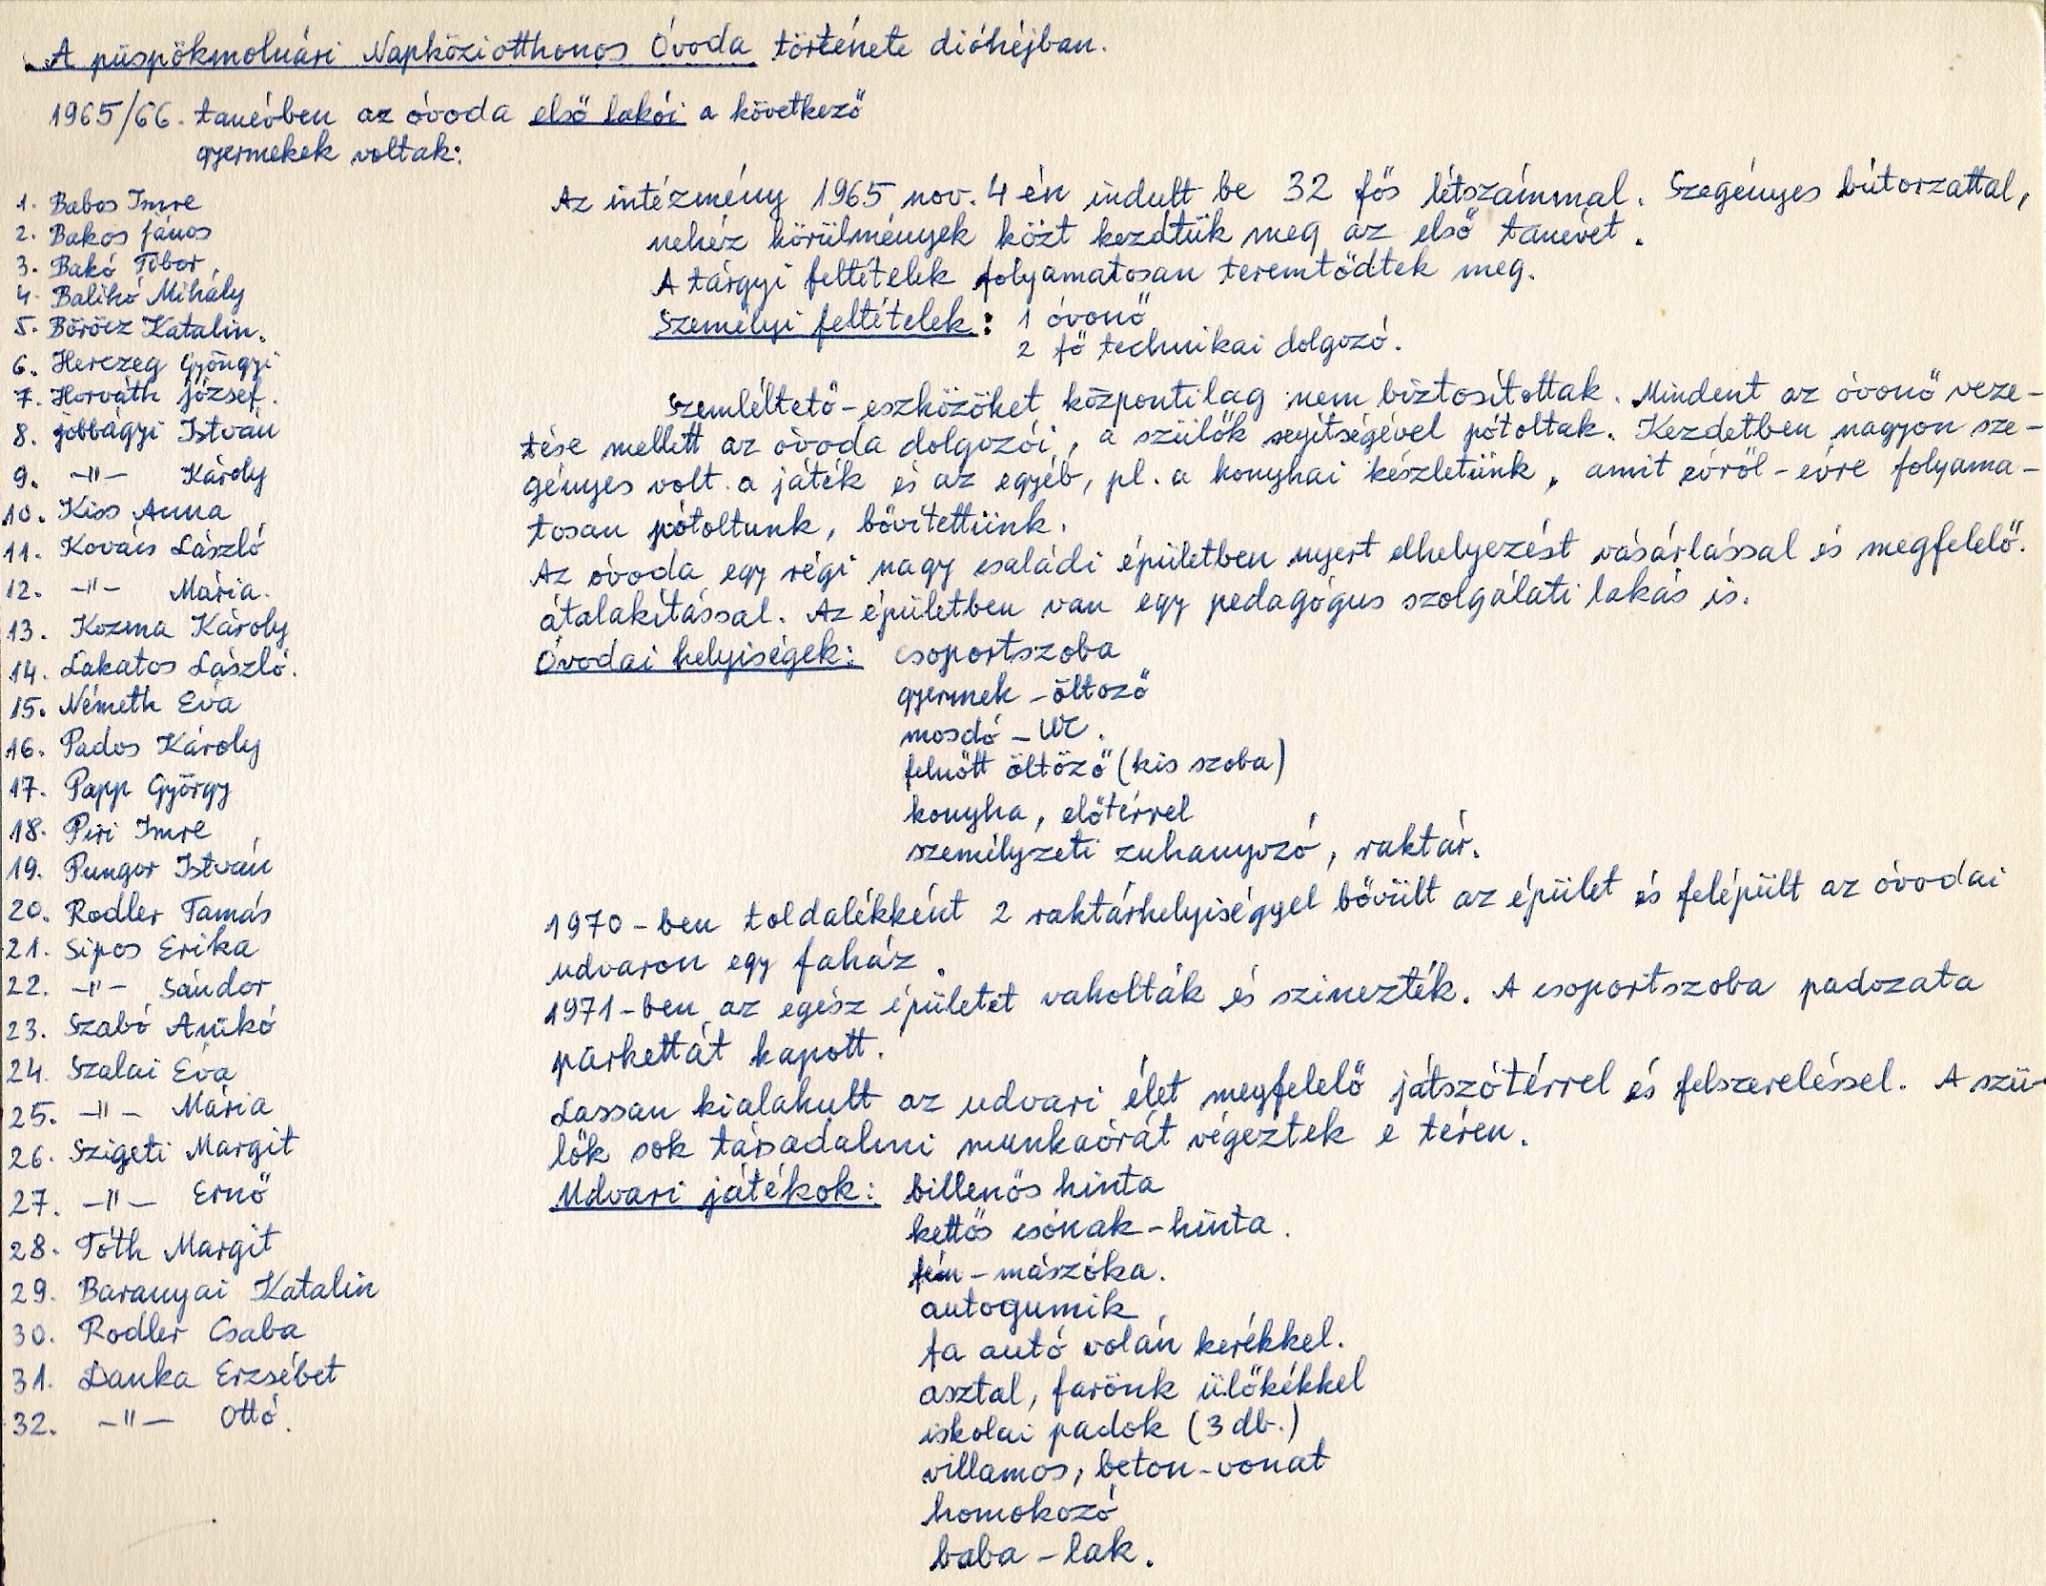 A püspökmolnári Napköziotthonos Óvoda története dióhéjban.
1965/66. tanévben az óvoda első lakói a következő
gyermekek voltak:
1. Babos Imre
2. Bakos János
3. Bakó Tibor
4. Balikó Mihály
5. Böröcz Katalin.
6. Herczeg Gyöngyi
7. Horváth József.
8. Jobbágyi István
9. -"- Károly
10. Kiss Anna
11. Kovács László
12. -"- Mária.
13. Kozma Károly
14. Lakatos László.
15. Németh Éva
16. Pados Károly
17. Papp György
18. Piri Imre
19. Pungor István
20. Rodler Tamás
21. Sipos Erika
22. -"- Sándor
23. Szabó Anikó
24. Szalai Éva
25. -"- Mária
26. Szigeti Margit
27. -"- Ernő
28. Tóth Margit
29. Baranyai Katalin
30. Rodler Csaba
31. Danka Erzsébet
32. -"- Ottó.
Az intézmény 1965 nov. 4-én indult be 32 fős létszámmal. Szegényes bútorzattal,
nehéz körülmények közt kezdtük meg az első tanévet.
A tárgyi feltételek folyamatosan teremtődtek meg.
Személyi feltételek: 1 óvonő
2 fő technikai dolgozó.
Szemléltető-eszközöket központilag nem biztosítottak. Mindent az óvonő veze-
tése mellett az óvoda dolgozói, a szülők segítségével pótoltak. Kezdetben nagyon sze-
gényes volt a játék és az egyéb, pl. a konyhai készletünk, amit évről-évre folyama-
tosan pótoltunk, bővítettünk.
Az óvoda egy régi nagy családi épületben nyert elhelyezést vásárlással és megfelelő.
átalakítással. Az épületben van egy pedagógus szolgálati lakás is.
Óvodai helyiségek: csoportszoba
gyermek-öltöző
mosdó-WC.
felnőtt öltöző (kis szoba)
konyha, előtérrel
személyzeti zuhanyozó, raktár.
1970-ben toldalékként 2 raktárhelyiséggyel bővült az épület és felépült az óvodai
udvaron egy faház.
1971-ben az egész épületet vakolták és szinezték. A csoportszoba padozata
parkettát kapott.
Lassan kialakult az udvari élet megfelelő játszótérrel és felszereléssel. A szü-
lők sok társadalmi munkaórát végeztek e téren.
Udvari játékok: billenős hinta
kettős csónak-hinta.
fém-mászóka.
autogumik
fa autó volán kerékkel.
asztal, farönk ülőkékkel
iskolai padok (3 db.)
villamos, beton-vonat
homokozó
baba-lak.